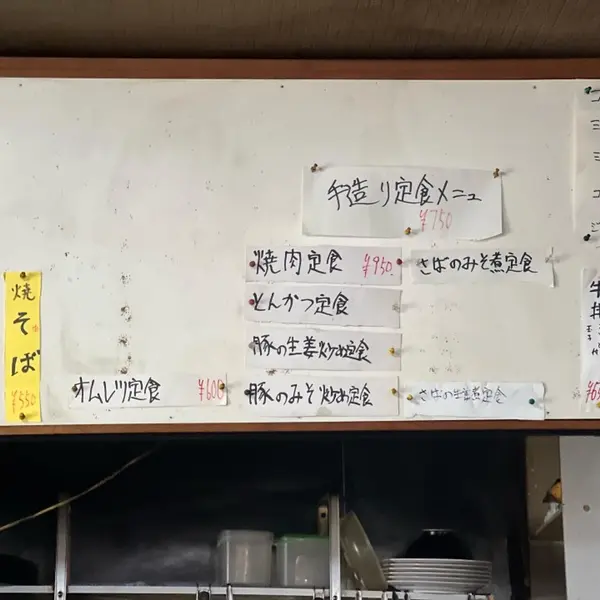 手造り定食メニュー
¥750
焼肉定食 ¥950
さばのみそ煮定食
とんかつ定食
豚の生姜炒め定食
豚のみそ炒め定食
さばの生姜煮定食
オムレツ定食 ¥600
焼そば
¥550